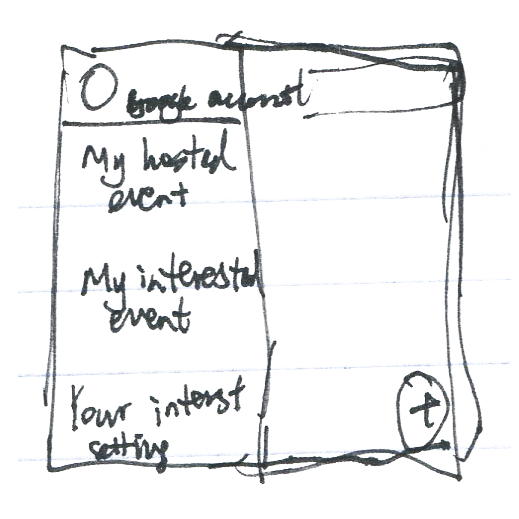 Google account
My hosted
event
My interested
event
Your interst
setting
+